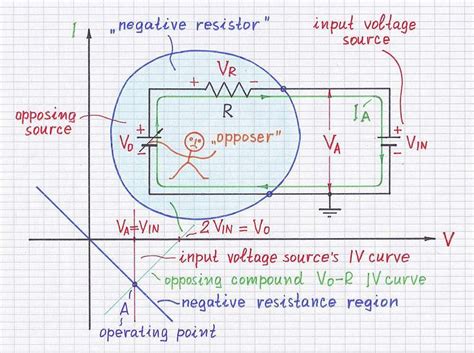 I
„negative resistor"
input voltage
source
+ VR −
R
opposing
source
+
VO
„opposer"
IA
VA
+
−
VIN
VA=VIN
2VIN=VO
V
input voltage source's IV curve
opposing compound VO-R IV curve
negative resistance region
A
operating point